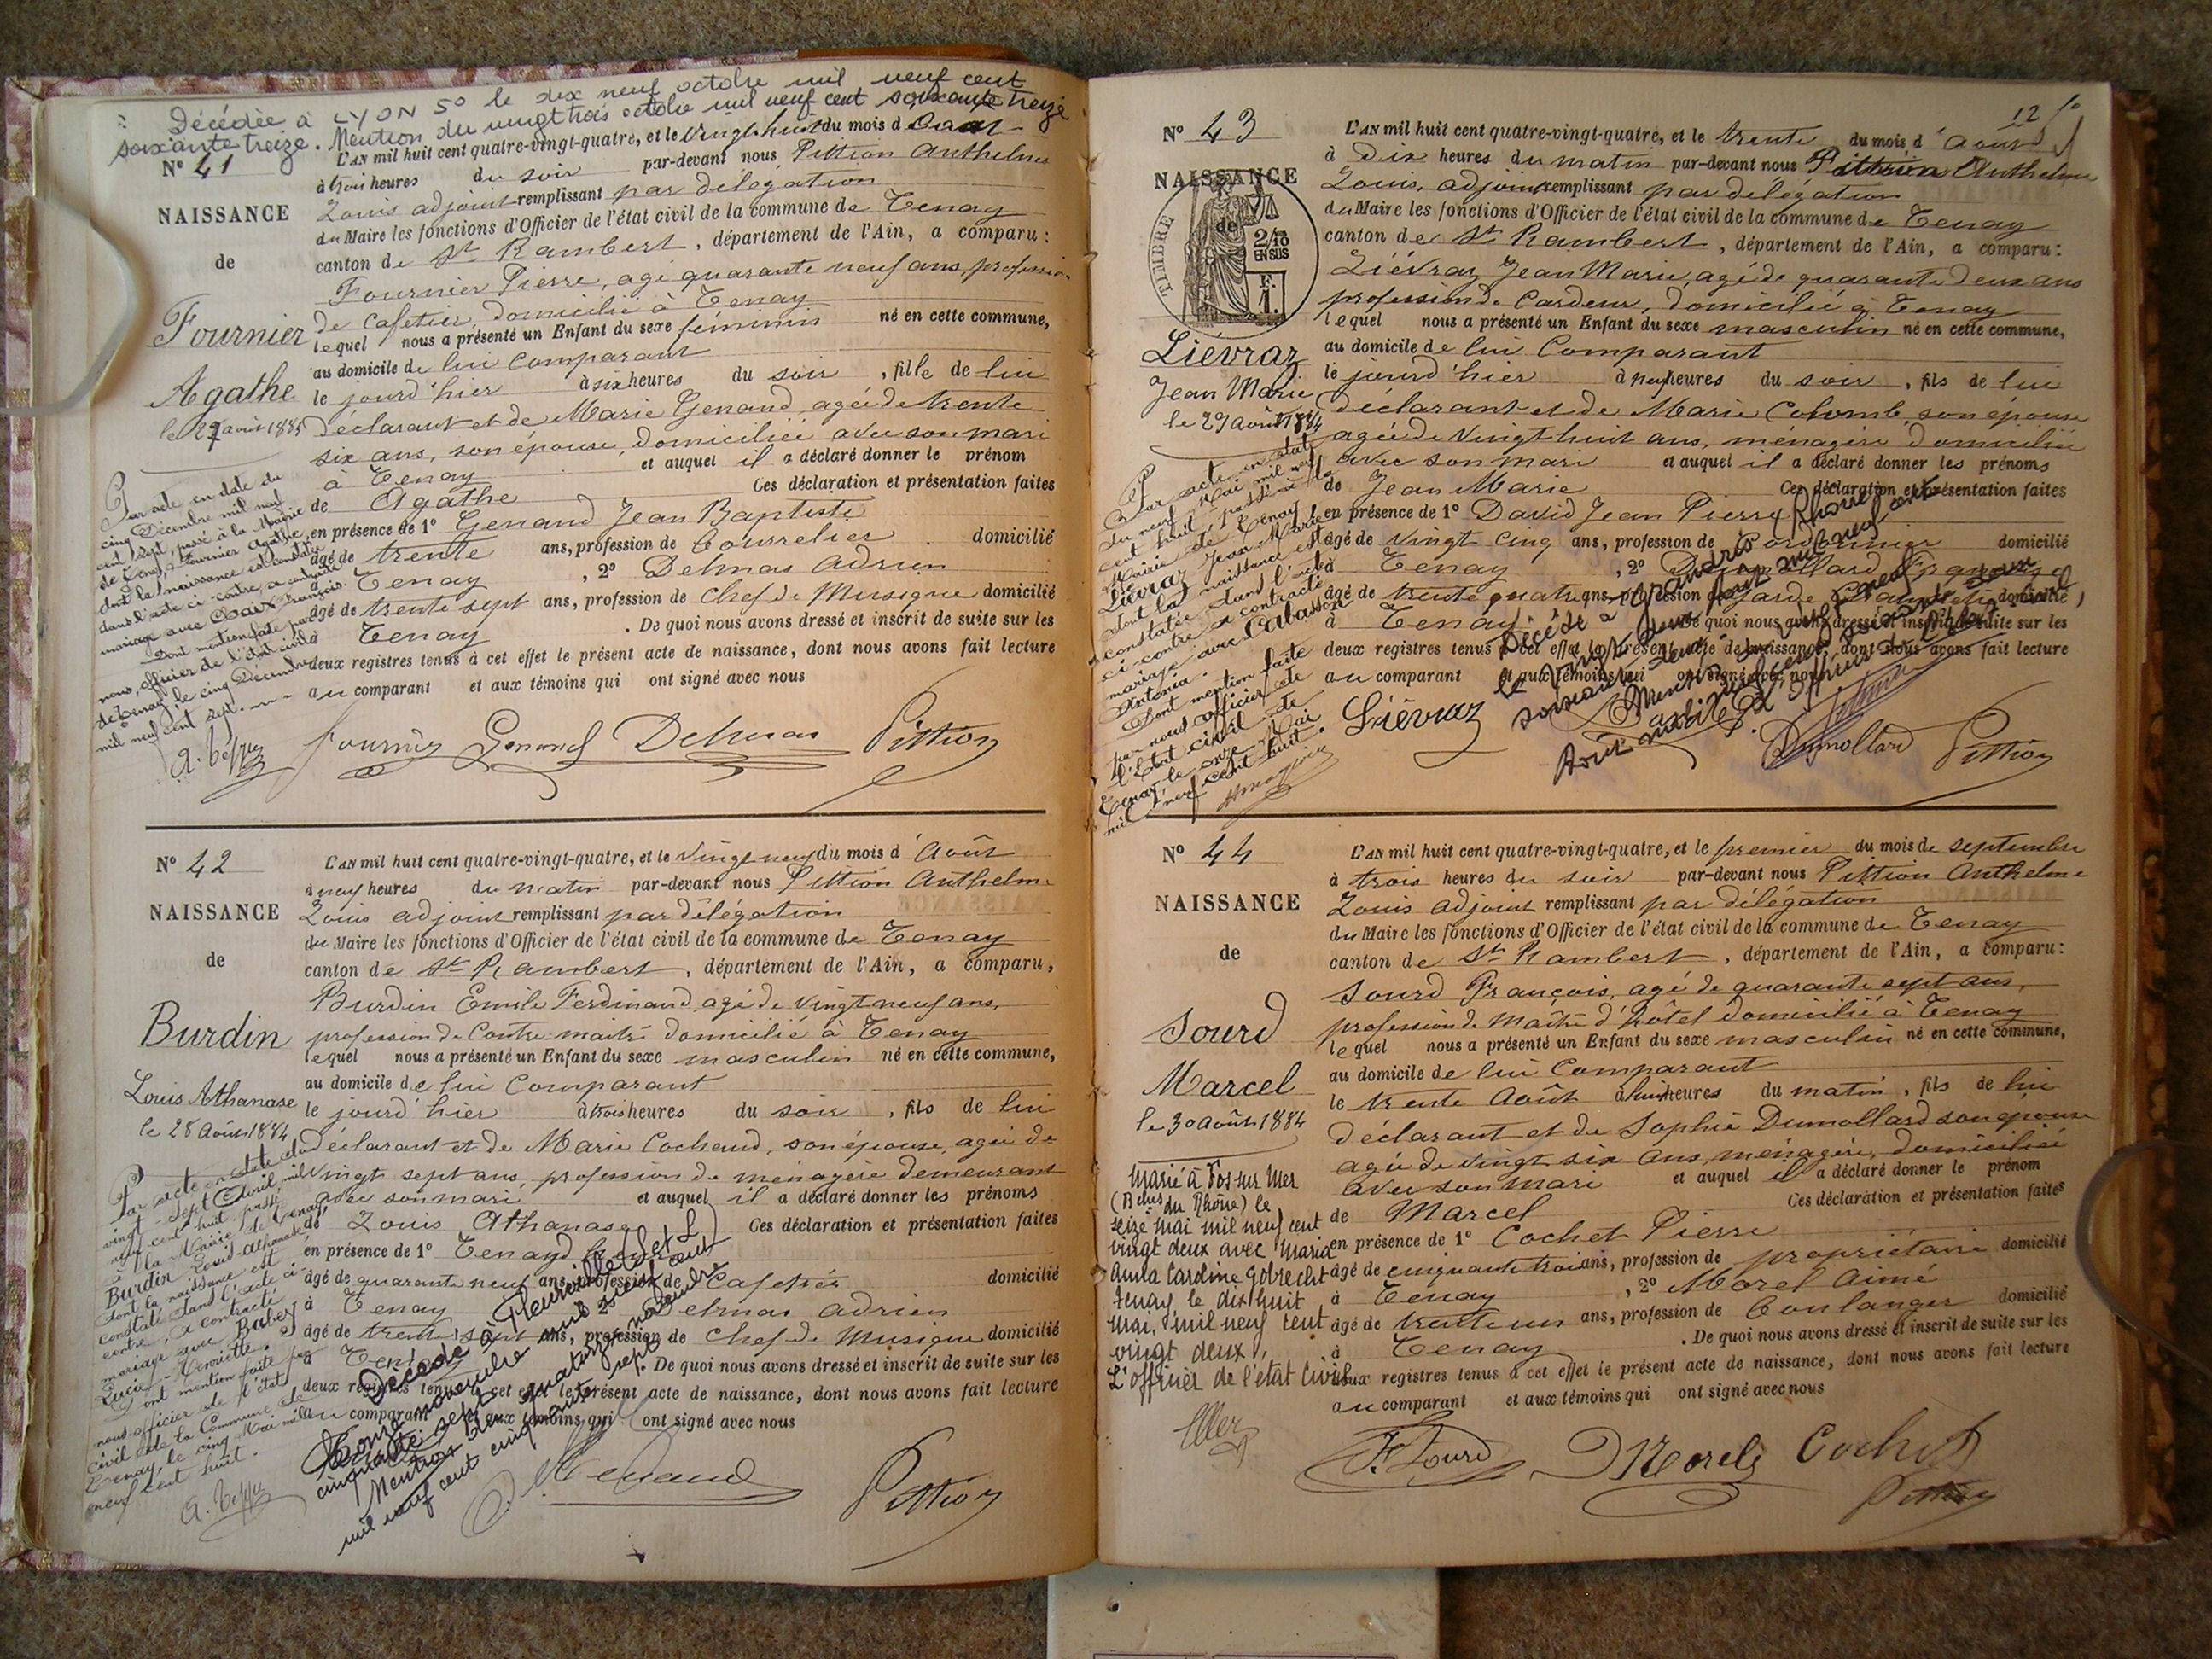 Décédée à LYON 5° le dix neuf octobre mil neuf cent
soixante treize. Mention du vingt trois octobre mil neuf cent soixante treize
N° 41
NAISSANCE
de
Fournier
Agathe
le 27 août 1884
L'AN mil huit cent quatre-vingt-quatre, et le vingt huit du mois d'Août
à trois heures du soir par-devant nous Pittion Anthelme
Louis adjoint remplissant par délégation
du Maire les fonctions d'Officier de l'état civil de la commune de Tenay
canton de St Rambert, département de l'Ain, a comparu :
Fournier Pierre, agé quarante neuf ans, profession
de Cafetier, domicilié à Tenay
lequel nous a présenté un Enfant du sexe féminin né en cette commune,
au domicile de lui Comparant
le jourd'hier à six heures du soir, fille de lui
déclarant et de Marie Genand, agée de trente
six ans, son épouse, domiciliée avec son mari
à Tenay et auquel il a déclaré donner le prénom
de Agathe Ces déclaration et présentation faites
en présence de 1° Genand Jean Baptiste
âgé de trente ans, profession de Bourrelier domicilié
à Tenay, 2° Delmas Adrien
âgé de trente sept ans, profession de Chef de Musique domicilié
à Tenay. De quoi nous avons dressé et inscrit de suite sur les
deux registres tenus à cet effet le présent acte de naissance, dont nous avons fait lecture
au comparant et aux témoins qui ont signé avec nous
Par acte en date du
cinq Décembre mil neuf
cent sept, passé à la Mairie
de Tenay, Fournier Agathe,
dont la naissance est constatée
dans l'acte ci-contre, a contracté
mariage avec François.
Dont mention faite par
nous, officier de l'état civil
de Tenay, le cinq Décembre
mil neuf cent sept.
Fournier Genand Delmas Pittion
N° 42
NAISSANCE
de
Burdin
Louis Athanase
le 28 Août 1884
L'AN mil huit cent quatre-vingt-quatre, et le vingt neuf du mois d'Août
à neuf heures du matin par-devant nous Pittion Anthelme
Louis adjoint remplissant par délégation
du Maire les fonctions d'Officier de l'état civil de la commune de Tenay
canton de St Rambert, département de l'Ain, a comparu,
Burdin Emile Ferdinand, agé de vingt neuf ans,
profession de Contre-maitre domicilié à Tenay
lequel nous a présenté un Enfant du sexe masculin né en cette commune,
au domicile de lui Comparant
le jourd'hier à trois heures du soir, fils de lui
déclarant et de Marie Cochaud, son épouse, agée de
vingt sept ans, profession de ménagère demeurant
avec son mari et auquel il a déclaré donner les prénoms
de Louis Athanase Ces déclaration et présentation faites
en présence de 1° Tenayd
âgé de quarante neuf ans, profession de Cafetier domicilié
à Tenay 2° Delmas Adrien
âgé de trente sept ans, profession de Chef de Musique domicilié
à Tenay. De quoi nous avons dressé et inscrit de suite sur les
deux registres tenus à cet effet le présent acte de naissance, dont nous avons fait lecture
au comparant et aux témoins qui ont signé avec nous
Par acte en date du
vingt-sept Avril mil
neuf cent huit, passé
à la Mairie de Tenay
Burdin Louis-Athanase
dont la naissance est
constatée dans l'acte ci-
contre, a contracté
mariage avec Babey
Lucie-Henriette.
Dont mention faite par
nous officier de l'état
civil de la Commune de
Tenay, le cinq Mai mil
neuf cent huit.
Décédé à
onze novembre mil neuf cent
cinquante sept
Mention du quatorze novembre
mil neuf cent cinquante sept
Pittion
12
N° 43
NAISSANCE
de
TIMBRE
2/10
EN SUS
F.
1.
Liévraz
Jean Marie
le 29 Août 1884
L'AN mil huit cent quatre-vingt-quatre, et le trente du mois d'Août
à dix heures du matin par-devant nous Pittion Anthelme
Louis, adjoint remplissant par délégation
du Maire les fonctions d'Officier de l'état civil de la commune de Tenay
canton de St Rambert, département de l'Ain, a comparu :
Liévraz Jean Marie, agé de quarante deux ans
profession de Cardeur, domicilié à Tenay
lequel nous a présenté un Enfant du sexe masculin né en cette commune,
au domicile de lui Comparant
le jourd'hier à neuf heures du soir, fils de lui
déclarant et de Marie Colomb, son épouse
agée de vingt huit ans, ménagère domiciliée
avec son mari et auquel il a déclaré donner les prénoms
de Jean Marie Ces déclaration et présentation faites
en présence de 1° David Jean Pierre
âgé de vingt cinq ans, profession de Cordonnier domicilié
à Tenay, 2° Dumollard François
âgé de trente quatre ans, profession de Garde Champêtre domicilié
à Tenay. De quoi nous avons dressé et inscrit de suite sur les
deux registres tenus à cet effet le présent acte de naissance, dont nous avons fait lecture
au comparant et aux témoins qui ont signé avec nous
Par acte en date
du neuf Mai mil neuf
cent huit, passé à la
Mairie de Tenay
Liévraz Jean Marie
dont la naissance est
constatée dans l'acte
ci-contre a contracté
mariage avec Cabasson
Antonia.
Dont mention faite
par nous officier de
l'Etat civil de
Tenay le onze Mai
mil neuf cent huit.
Liévraz Dumollard Pittion
N° 44
NAISSANCE
de
Sourd
Marcel
le 30 Août 1884
L'AN mil huit cent quatre-vingt-quatre, et le premier du mois de septembre
à trois heures du soir par-devant nous Pittion Anthelme
Louis adjoint remplissant par délégation
du Maire les fonctions d'Officier de l'état civil de la commune de Tenay
canton de St Rambert, département de l'Ain, a comparu :
Sourd François, agé de quarante sept ans,
profession de Maître d'hôtel domicilié à Tenay
lequel nous a présenté un Enfant du sexe masculin né en cette commune,
au domicile de lui Comparant
le trente Août à huit heures du matin, fils de lui
déclarant et de Sophie Dumollard son épouse
agée de vingt six ans, ménagère, domiciliée
avec son mari et auquel il a déclaré donner le prénom
de Marcel Ces déclaration et présentation faites
en présence de 1° Cochet Pierre
âgé de cinquante trois ans, profession de propriétaire domicilié
à Tenay, 2° Morel Aimé
âgé de trente un ans, profession de Boulanger domicilié
à Tenay. De quoi nous avons dressé et inscrit de suite sur les
deux registres tenus à cet effet le présent acte de naissance, dont nous avons fait lecture
au comparant et aux témoins qui ont signé avec nous
Marié à Fos sur Mer
(Bches du Rhône) le
seize mai mil neuf cent
vingt deux avec Maria
Anna Caroline Gobrecht
Tenay, le dix huit
mai, mil neuf cent
vingt deux,
L'officier de l'état civil
F. Sourd Morel Cochet
Pittion